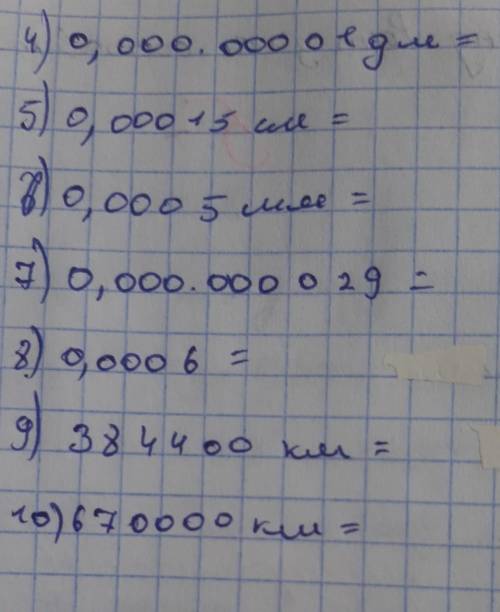 4) 0,000.00001 дм =
5) 0,00015 см =
6) 0,0005 мм =
7) 0,000.000029 =
8) 0,0006 =
9) 384400 км =
10) 670000 км =